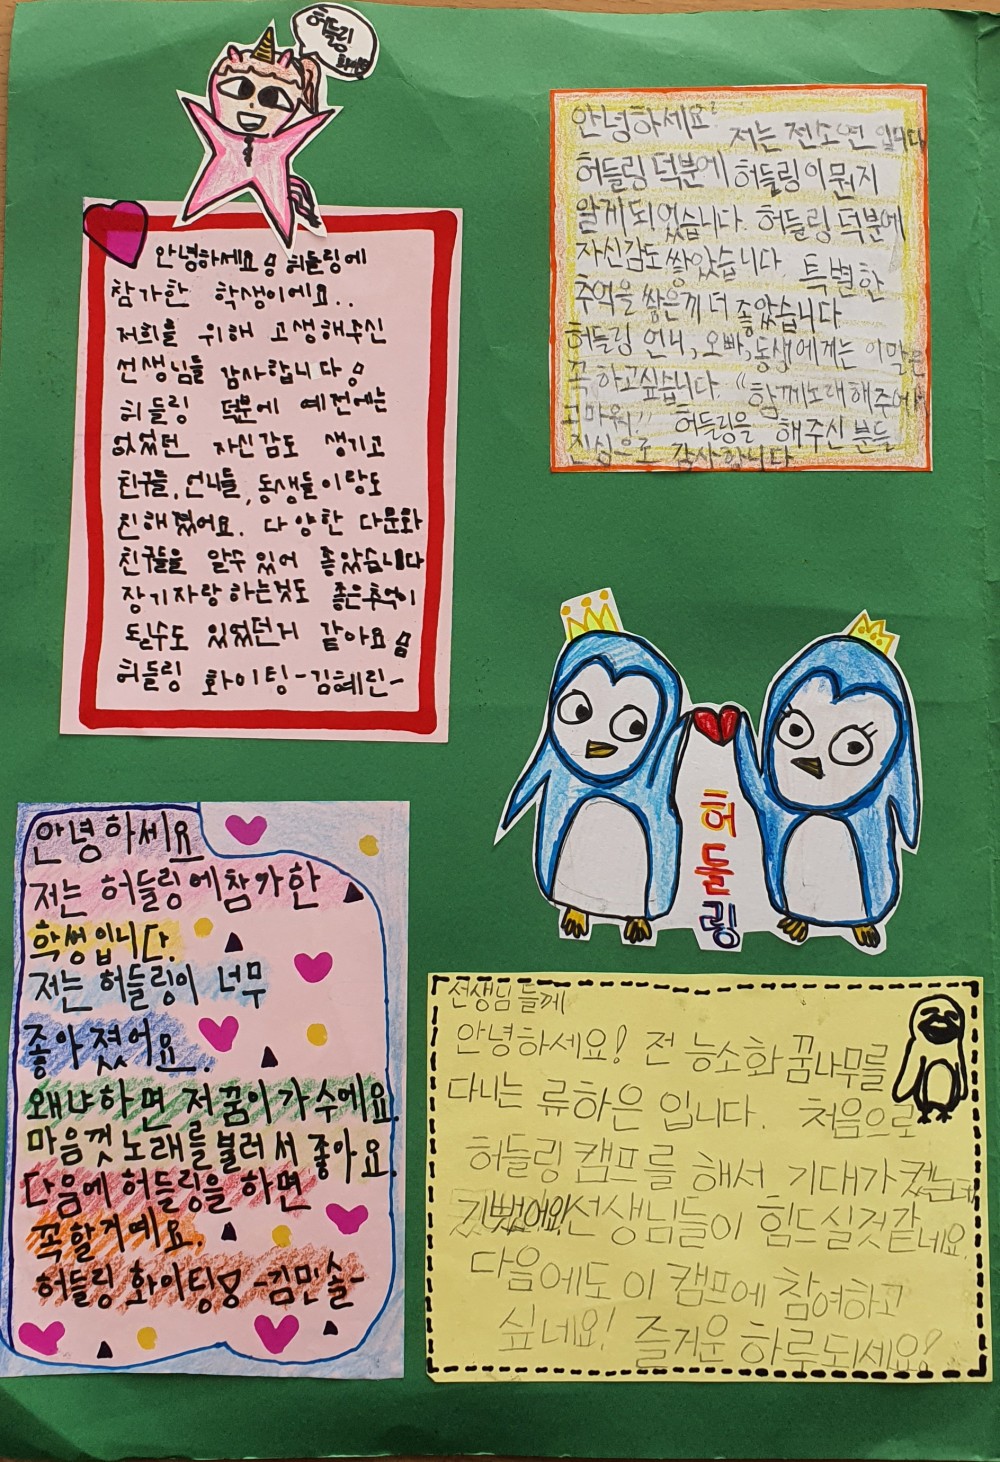 허들링
화이팅
안녕하세요 허들링에
참가한 학생이에요..
저희를 위해 고생해주신
선생님들 감사합니다
허들링 덕분에 예전에는
없었던 자신감도 생기고
친구들, 언니들, 동생들이랑도
친해졌어요. 다양한 다문화
친구들을 알수 있어 좋았습니다
장기자랑 하는것도 좋은추억이
될수도 있었던거 같아요
허들링 화이팅 -김혜린-
안녕하세요? 저는 전소연 입니다
허들링 덕분에 허들링이 뭔지
알게 되었습니다. 허들링 덕분에
자신감도 쌓았습니다. 특별한
추억을 쌓은께 더 좋았습니다
허들링 언니, 오빠, 동생에게는 이말은
꼭 하고싶습니다. "함께노래해주어서
고마워!" 허들링을 해주신 분들
진심으로 감사합니다
허들링
안녕하세요
저는 허들링에참가한
학생입니다.
저는 허들링이 너무
좋아졌어요.
왜냐하면 저꿈이가수예요.
마음껏노래를불러서 좋아요.
다음에허들링을 하면
꼭할거예요.
허들링 화이팅 -김민솔-
선생님들께
안녕하세요! 전 능소화 꿈나무를
다니는 류하은 입니다. 처음으로
허들링 캠프를 해서 기대가 컸는데
기뻤어요! 선생님들이 힘드실것같네요.
다음에도 이 캠프에 참여하고
싶네요! 즐거운 하루되세요!